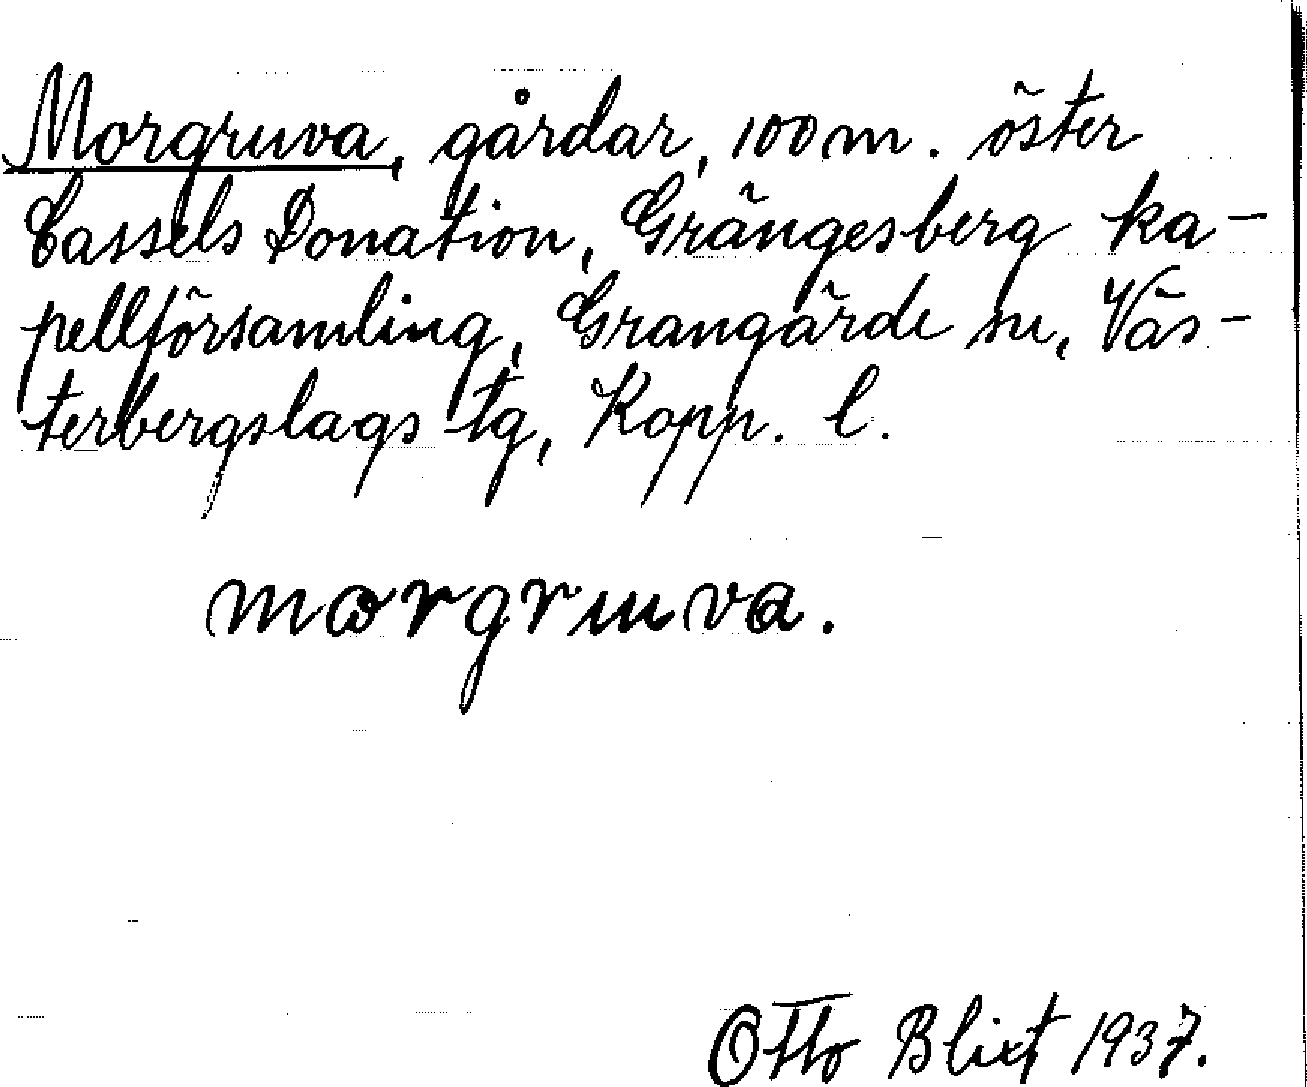 Morgruva, gårdar, 100 m. öster
Cassels Donation, Grängesberg ka-
pellförsamling, Grangärde sn, Väs-
terbergslags tg, Kopp. l.
morgruva.
Otto Blixt 1937.